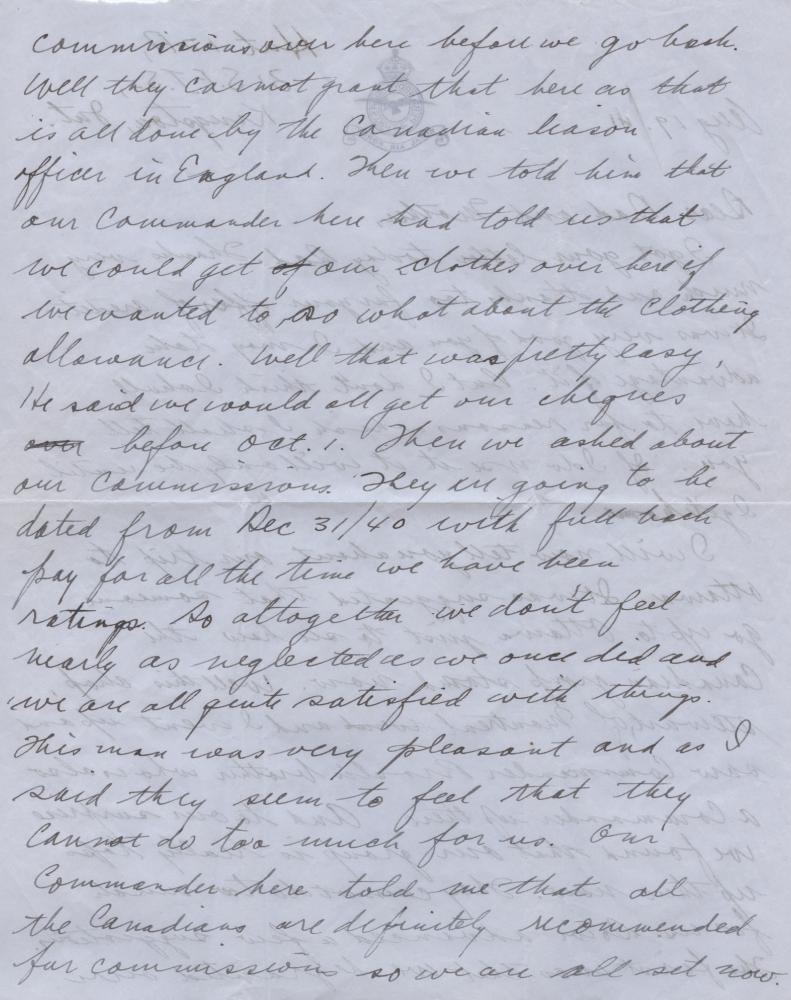 commissions over here before we go back.
Well they cannot grant that here as that
is all done by the Canadian liason
officer in England. Then we told him that
our Commander here had told us that
we could get of our clothes over here if
we wanted to, so what about the clothing
allowance. Well that was pretty easy,
He said we would all get our cheques
over before Oct. 1. Then we asked about
our Commissions. They are going to be
dated from Dec 31/40 with full back
pay for all the time we have been
ratings. So altogether we don't feel
nearly as neglected as we once did and
we are all quite satisfied with things.
This man was very pleasant and as I
said they seem to feel that they
cannot do too much for us. Our
Commander here told me that all
the Canadians are definitely recommended
for commissions so we are all set now.